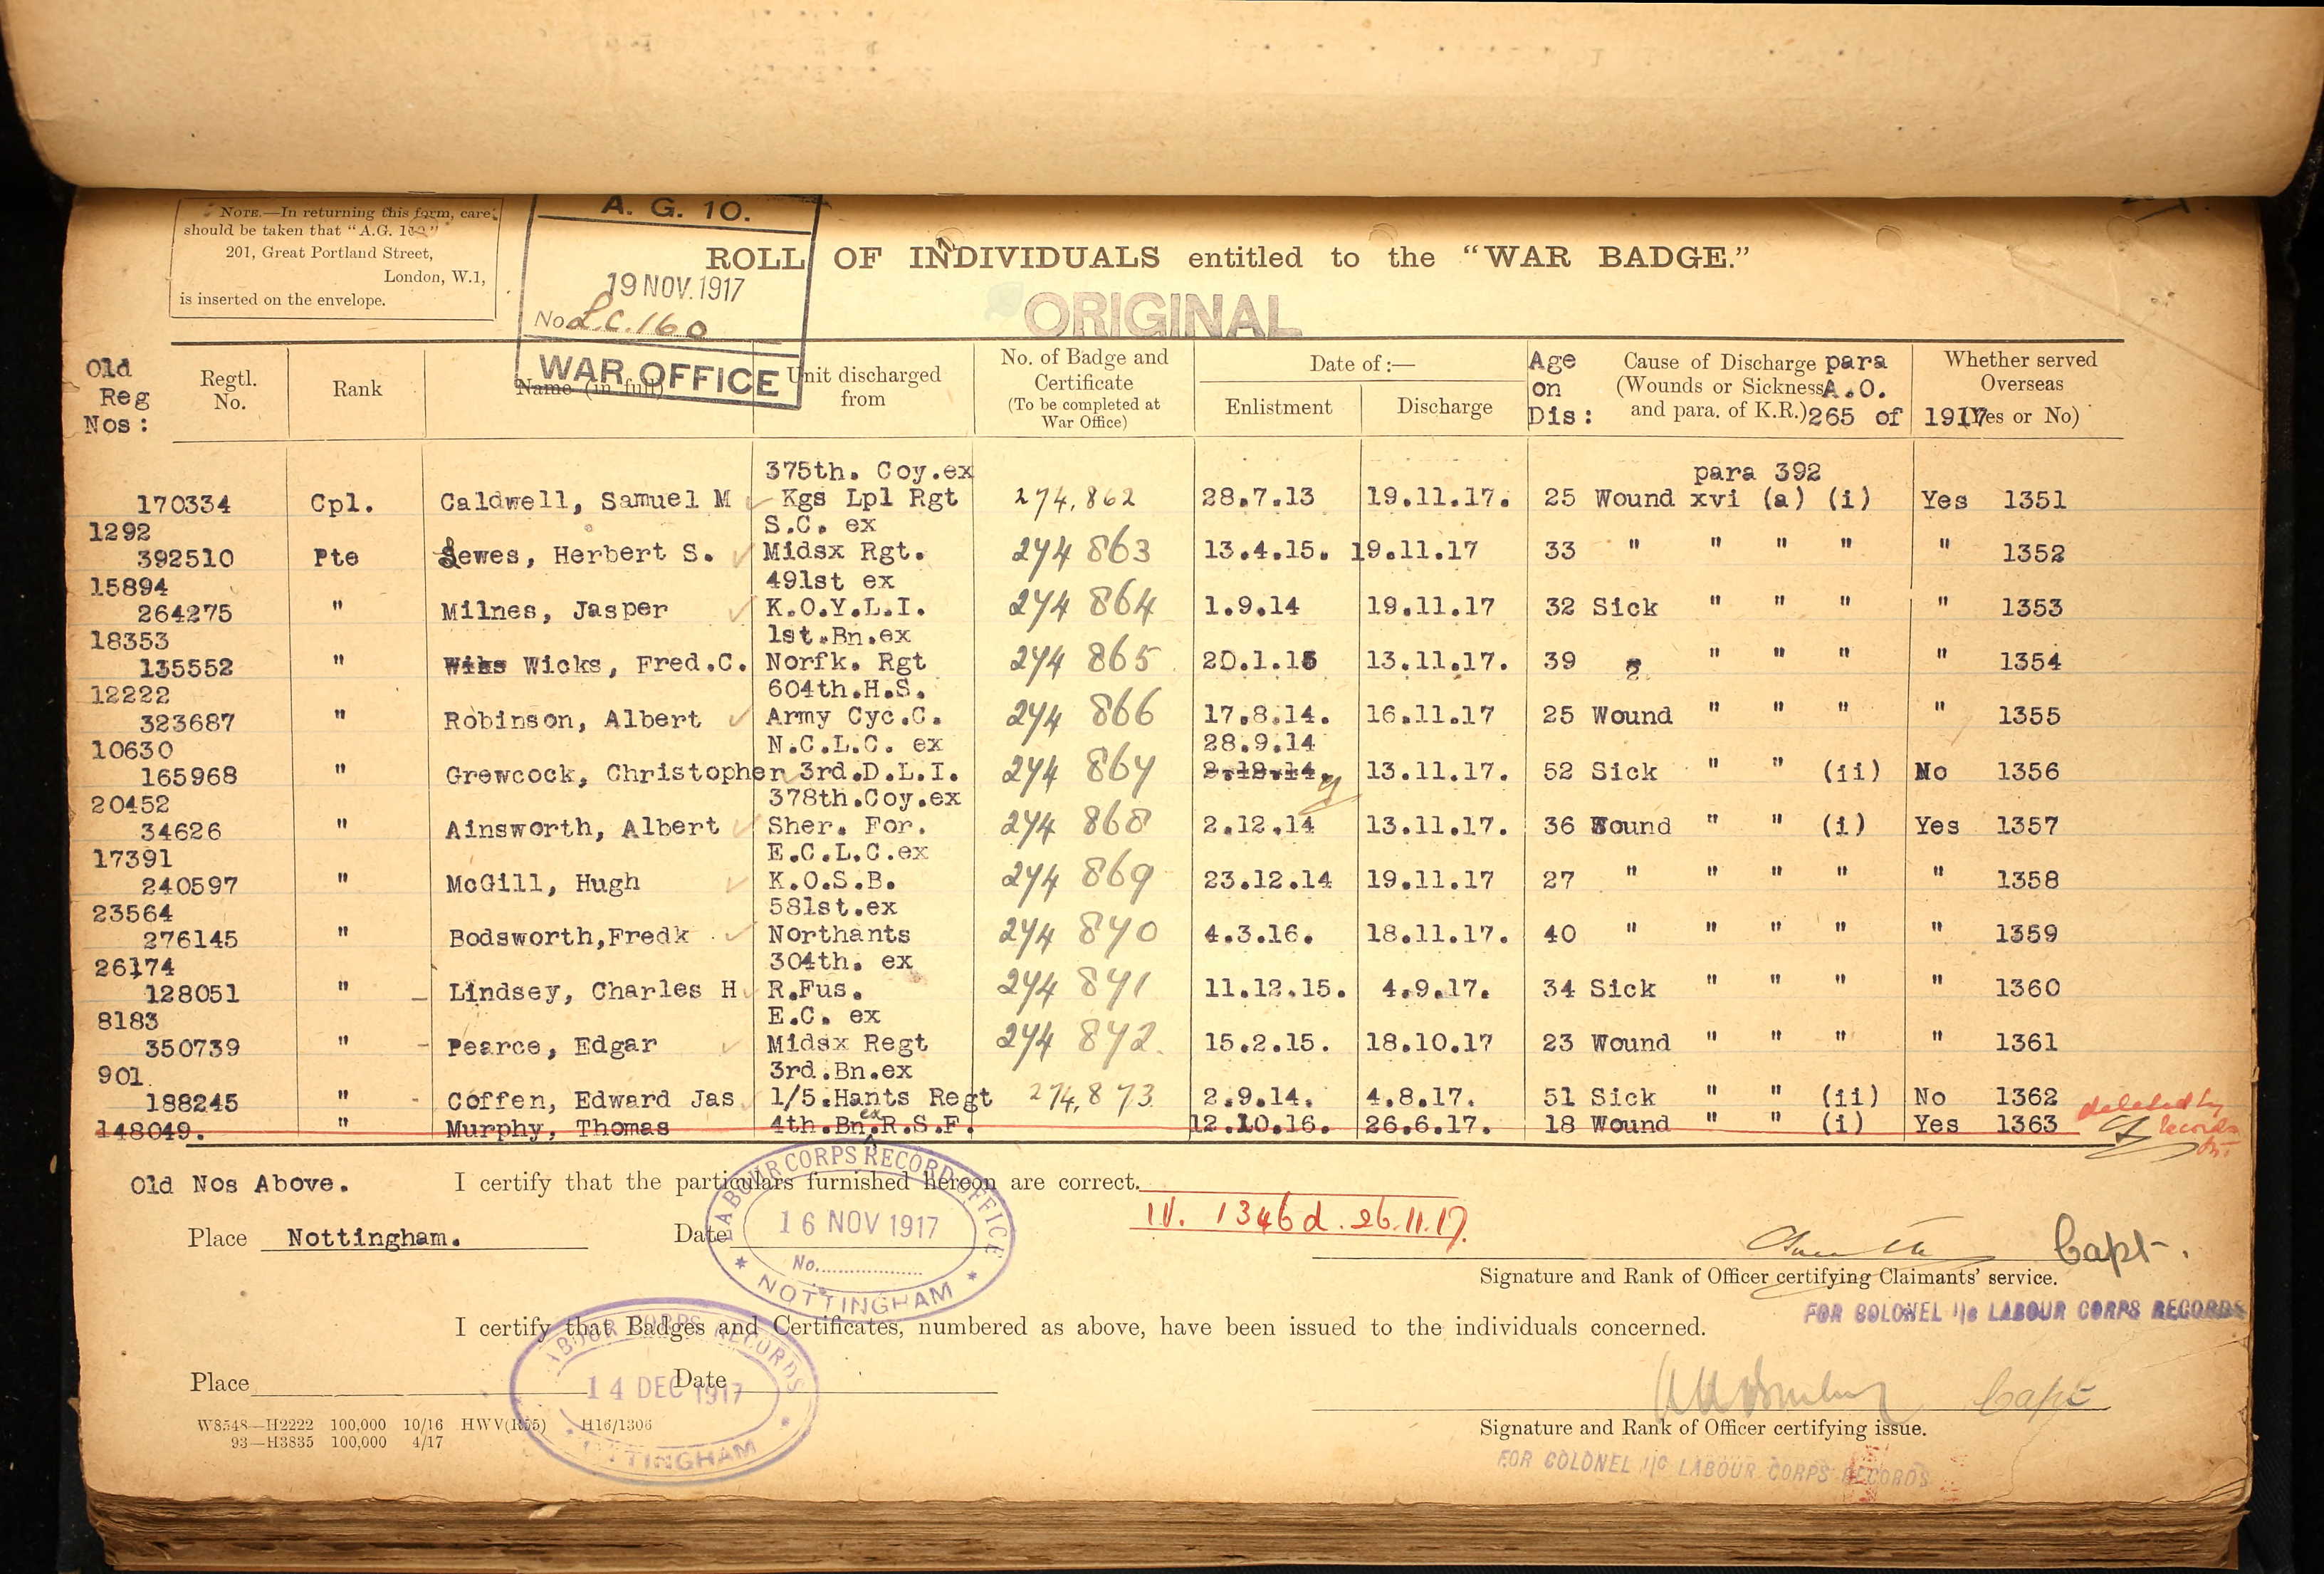 NOTE.—In returning this form, care
should be taken that "A.G. 10"
201, Great Portland Street,
London, W.1,
is inserted on the envelope.
A. G. 10.
19 NOV. 1917
No. L.C. 160
WAR OFFICE
ROLL OF INDIVIDUALS entitled to the "WAR BADGE."
ORIGINAL
Old Reg Nos: Regtl. No. Rank Name (in full) Unit discharged from No. of Badge and Certificate (To be completed at War Office) Date of:— Enlistment Discharge Age on Dis: Cause of Discharge para (Wounds or Sickness A.O. and para. of K.R.) 265 of 1917 Whether served Overseas (Yes or No)
375th. Coy.ex para 392
170334 Cpl. Caldwell, Samuel M Kgs Lpl Rgt 274,862 28.7.13 19.11.17. 25 Wound xvi (a) (i) Yes 1351
1292 S.C. ex
392510 Pte Lewes, Herbert S. Midsx Rgt. 274 863 13.4.15. 19.11.17 33 " " " " " 1352
15894 491st ex
264275 " Milnes, Jasper K.O.Y.L.I. 274 864 1.9.14 19.11.17 32 Sick " " " " 1353
18353 1st.Bn.ex
135552 " Wiks Wicks, Fred.C. Norfk. Rgt 274 865 20.1.15 13.11.17. 39 " " " " " 1354
12222 604th.H.S.
323687 " Robinson, Albert Army Cyc.C. 274 866 17.8.14. 16.11.17 25 Wound " " " " 1355
10630 N.C.L.C. ex 28.9.14
165968 " Grewcock, Christopher 3rd.D.L.I. 274 867 2.12.14. 13.11.17. 52 Sick " " (ii) No 1356
20452 378th.Coy.ex
34626 " Ainsworth, Albert Sher. For. 274 868 2.12.14 13.11.17. 36 Wound " " (i) Yes 1357
17391 E.C.L.C.ex
240597 " McGill, Hugh K.O.S.B. 274 869 23.12.14 19.11.17 27 " " " " " 1358
23564 581st.ex
276145 " Bodsworth,Fredk Northants 274 870 4.3.16. 18.11.17. 40 " " " " " 1359
26174 304th. ex
128051 " Lindsey, Charles H R.Fus. 274 871 11.12.15. 4.9.17. 34 Sick " " " " 1360
8183 E.C. ex
350739 " Pearce, Edgar Midsx Regt 274 872. 15.2.15. 18.10.17 23 Wound " " " " 1361
901. 3rd.Bn.ex
188245 " Coffen, Edward Jas 1/5.Hants Regt 274,873 2.9.14. 4.8.17. 51 Sick " " (ii) No 1362
148049. " Murphy, Thomas 4th.Bn.ex R.S.F. 12.10.16. 26.6.17. 18 Wound " " (i) Yes 1363 deleted by Records
Old Nos Above. I certify that the particulars furnished hereon are correct.
LABOUR CORPS RECORD OFFICE
16 NOV 1917
No.
* NOTTINGHAM *
IV. 1346d. 26.11.17.
Place Nottingham. Date
Capt.
Signature and Rank of Officer certifying Claimants' service.
FOR COLONEL I/c LABOUR CORPS RECORDS
I certify that Badges and Certificates, numbered as above, have been issued to the individuals concerned.
LABOUR CORPS RECORDS
14 DEC 1917
NOTTINGHAM
Place Date
Capt
Signature and Rank of Officer certifying issue.
FOR COLONEL I/c LABOUR CORPS RECORDS
W8548—H2222 100,000 10/16 HWV(R55) H16/1306
93—H3835 100,000 4/17